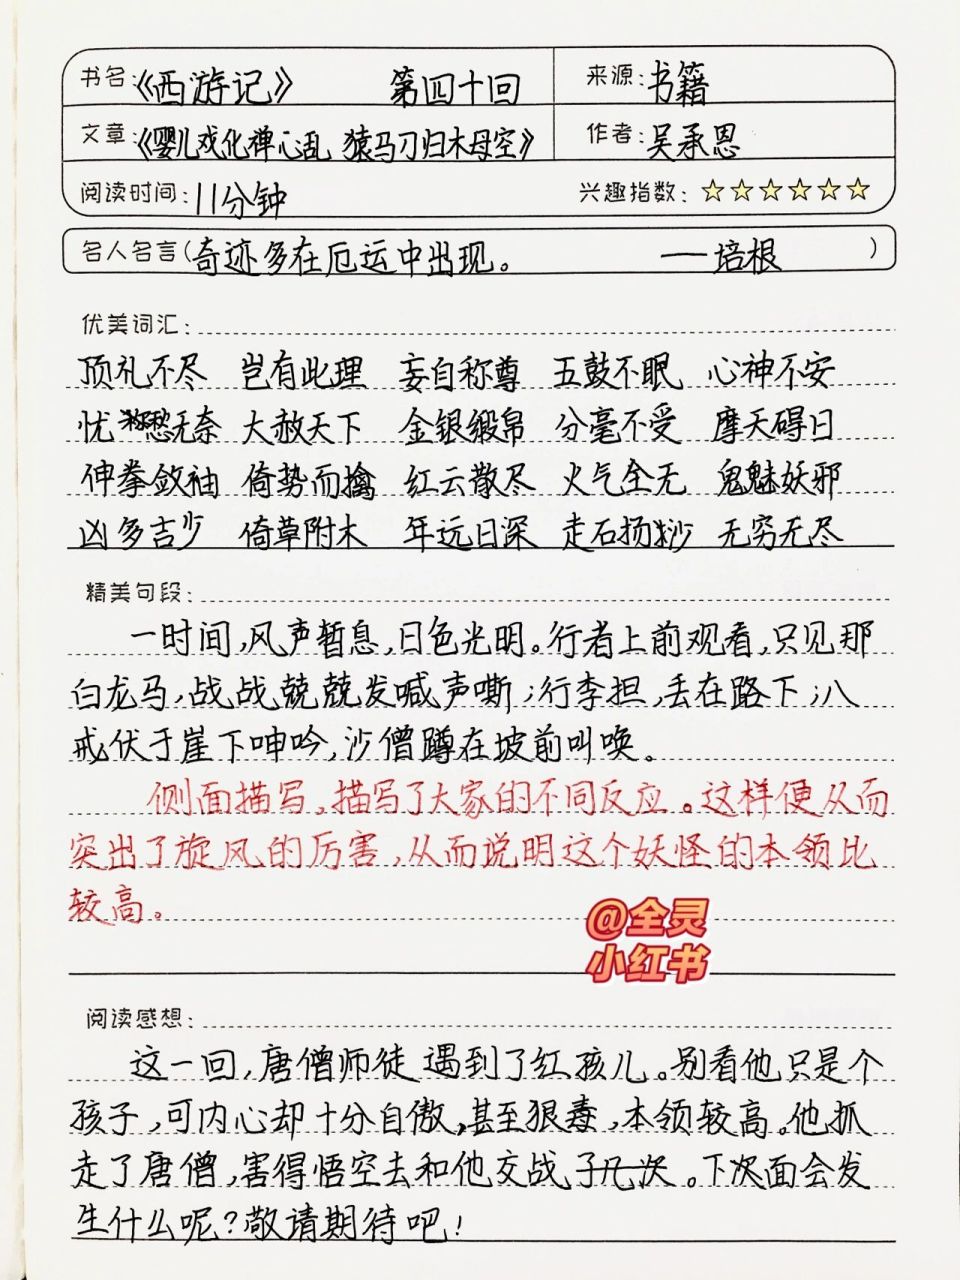 书名:《西游记》 第四十回 来源:书籍
文章:《婴儿戏化禅心乱 猿马刀归木母空》 作者:吴承恩
阅读时间:11分钟 兴趣指数:☆☆☆☆☆☆
名人名言(奇迹多在厄运中出现。 ——培根 )
优美词汇:
顶礼不尽 岂有此理 妄自称尊 五鼓不眠 心神不安
忧愁无奈 大赦天下 金银缎帛 分毫不受 摩天碍日
伸拳敛袖 倚势而擒 红云散尽 火气全无 鬼魅妖邪
凶多吉少 倚草附木 年远日深 走石扬沙 无穷无尽
精美句段:
一时间,风声暂息,日色光明。行者上前观看,只见那
白龙马,战战兢兢发喊声嘶;行李担,丢在路下;八
戒伏于崖下呻吟,沙僧蹲在坡前叫唤。
侧面描写,描写了大家的不同反应。这样便从而
突出了旋风的厉害,从而说明这个妖怪的本领比
较高。
@全灵
小红书
阅读感想:
这一回,唐僧师徒遇到了红孩儿。别看他只是个
孩子,可内心却十分自傲,甚至狠毒,本领较高。他抓
走了唐僧,害得悟空去和他交战了几次。下次面会发
生什么呢?敬请期待吧!